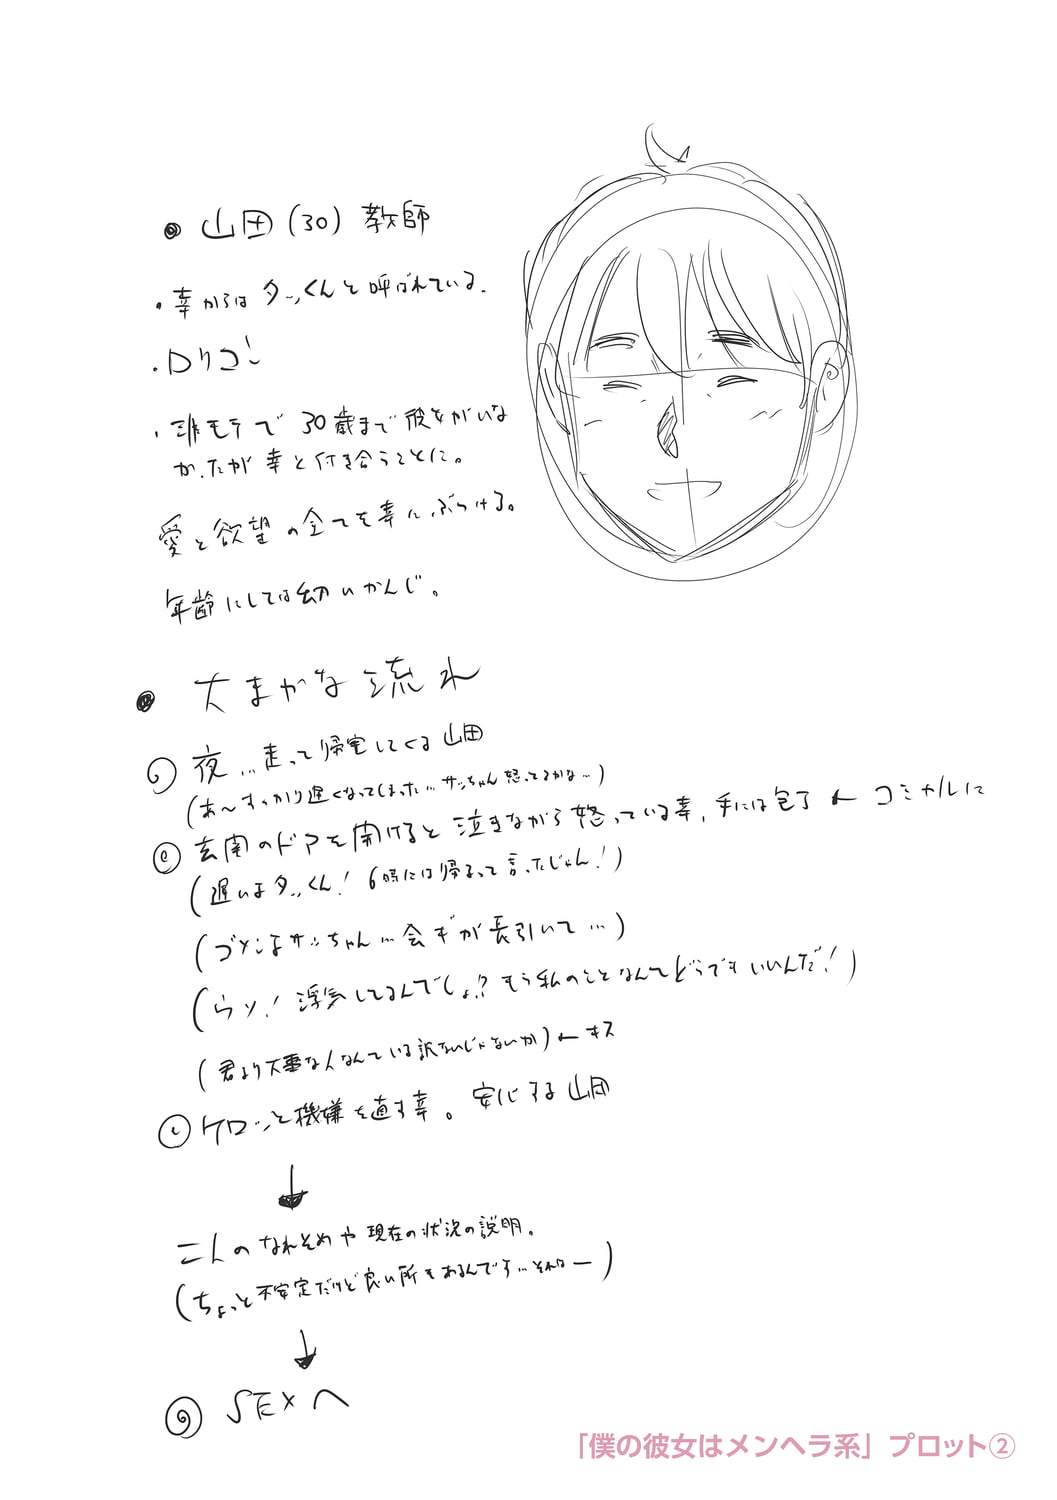 山田(30) 教師
・幸からはタッくんと呼ばれている.
・ロリコン
・非モテで30歳まで彼女がいな
かったが幸と付き合うことに。
愛と欲望の全てを幸にぶつける。
年齢にしては幼いかんじ。
大まかな流れ
夜…走って帰宅してくる山田
(あ〜すっかり遅くなってしまった…サッちゃん怒ってるかな…)
玄関のドアを開けると泣きながら怒っている幸,手には包丁←コミカルに
(遅いよタッくん!6時には帰るって言ったじゃん!)
(ゴメンよサッちゃん…会ギが長引いて…)
(ウソ!浮気してるんでしょ!?もう私のことなんてどうでもいいんだ!)
(君より大事な人なんている訳ないじゃないか)←キス
ケロッと機嫌を直す幸。安心する山田
↓
二人のなれそめや現在の状況の説明。
(ちょっと不安定だけど良い所もあるんです…それは―)
↓
SEXへ
「僕の彼女はメンヘラ系」プロット②